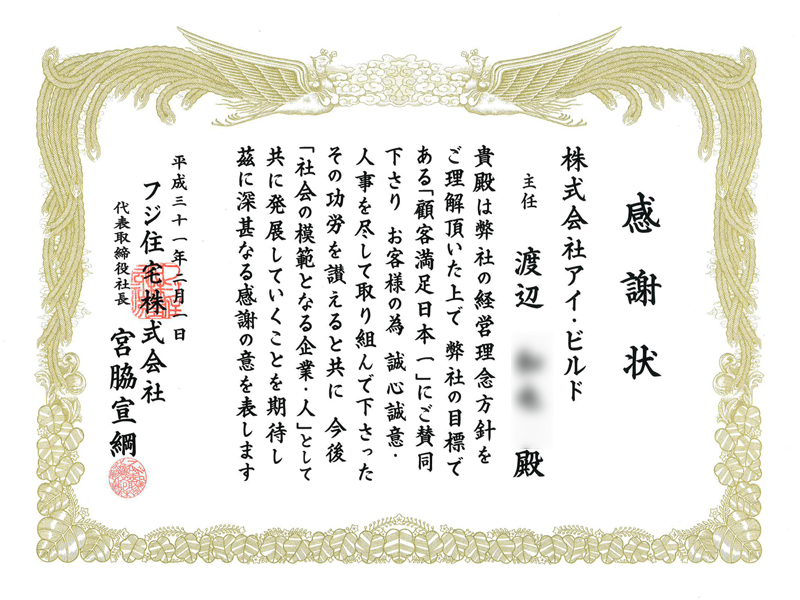 感謝状
株式会社アイ・ビルド
主任 渡辺 殿
貴殿は弊社の経営理念方針を
ご理解頂いた上で 弊社の目標で
ある「顧客満足日本一」にご賛同
下さり お客様の為 誠心誠意・
人事を尽して取り組んで下さった
その功労を讃えると共に 今後
「社会の模範となる企業・人」として
共に発展していくことを期待し
茲に深甚なる感謝の意を表します
平成三十一年二月一日
フジ住宅株式会社
代表取締役社長 宮脇宣綱